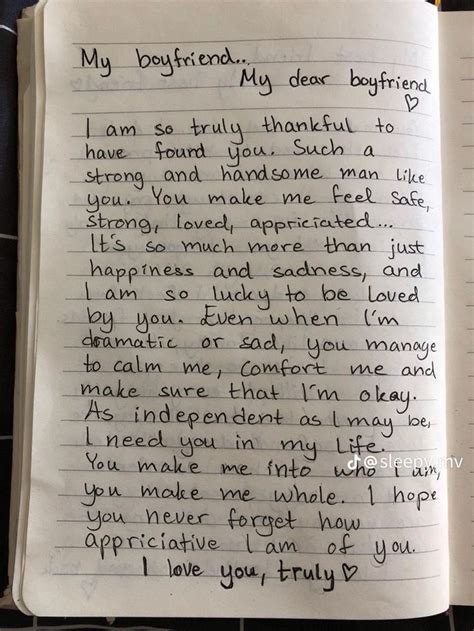 My boyfriend..
My dear boyfriend
♡
I am so truly thankful to
have found you. Such a
strong and handsome man like
you. You make me feel safe,
strong, loved, appriciated...
It's so much more than just
happiness and sadness, and
I am so lucky to be loved
by you. Even when I'm
dramatic or sad, you manage
to calm me, comfort me and
make sure that I'm okay.
As independent as I may be,
I need you in my life.
You make me into who I am,
@sleepy
you make me whole. I hope
you never forget how
appriciative I am of you.
I love you, truly ♡